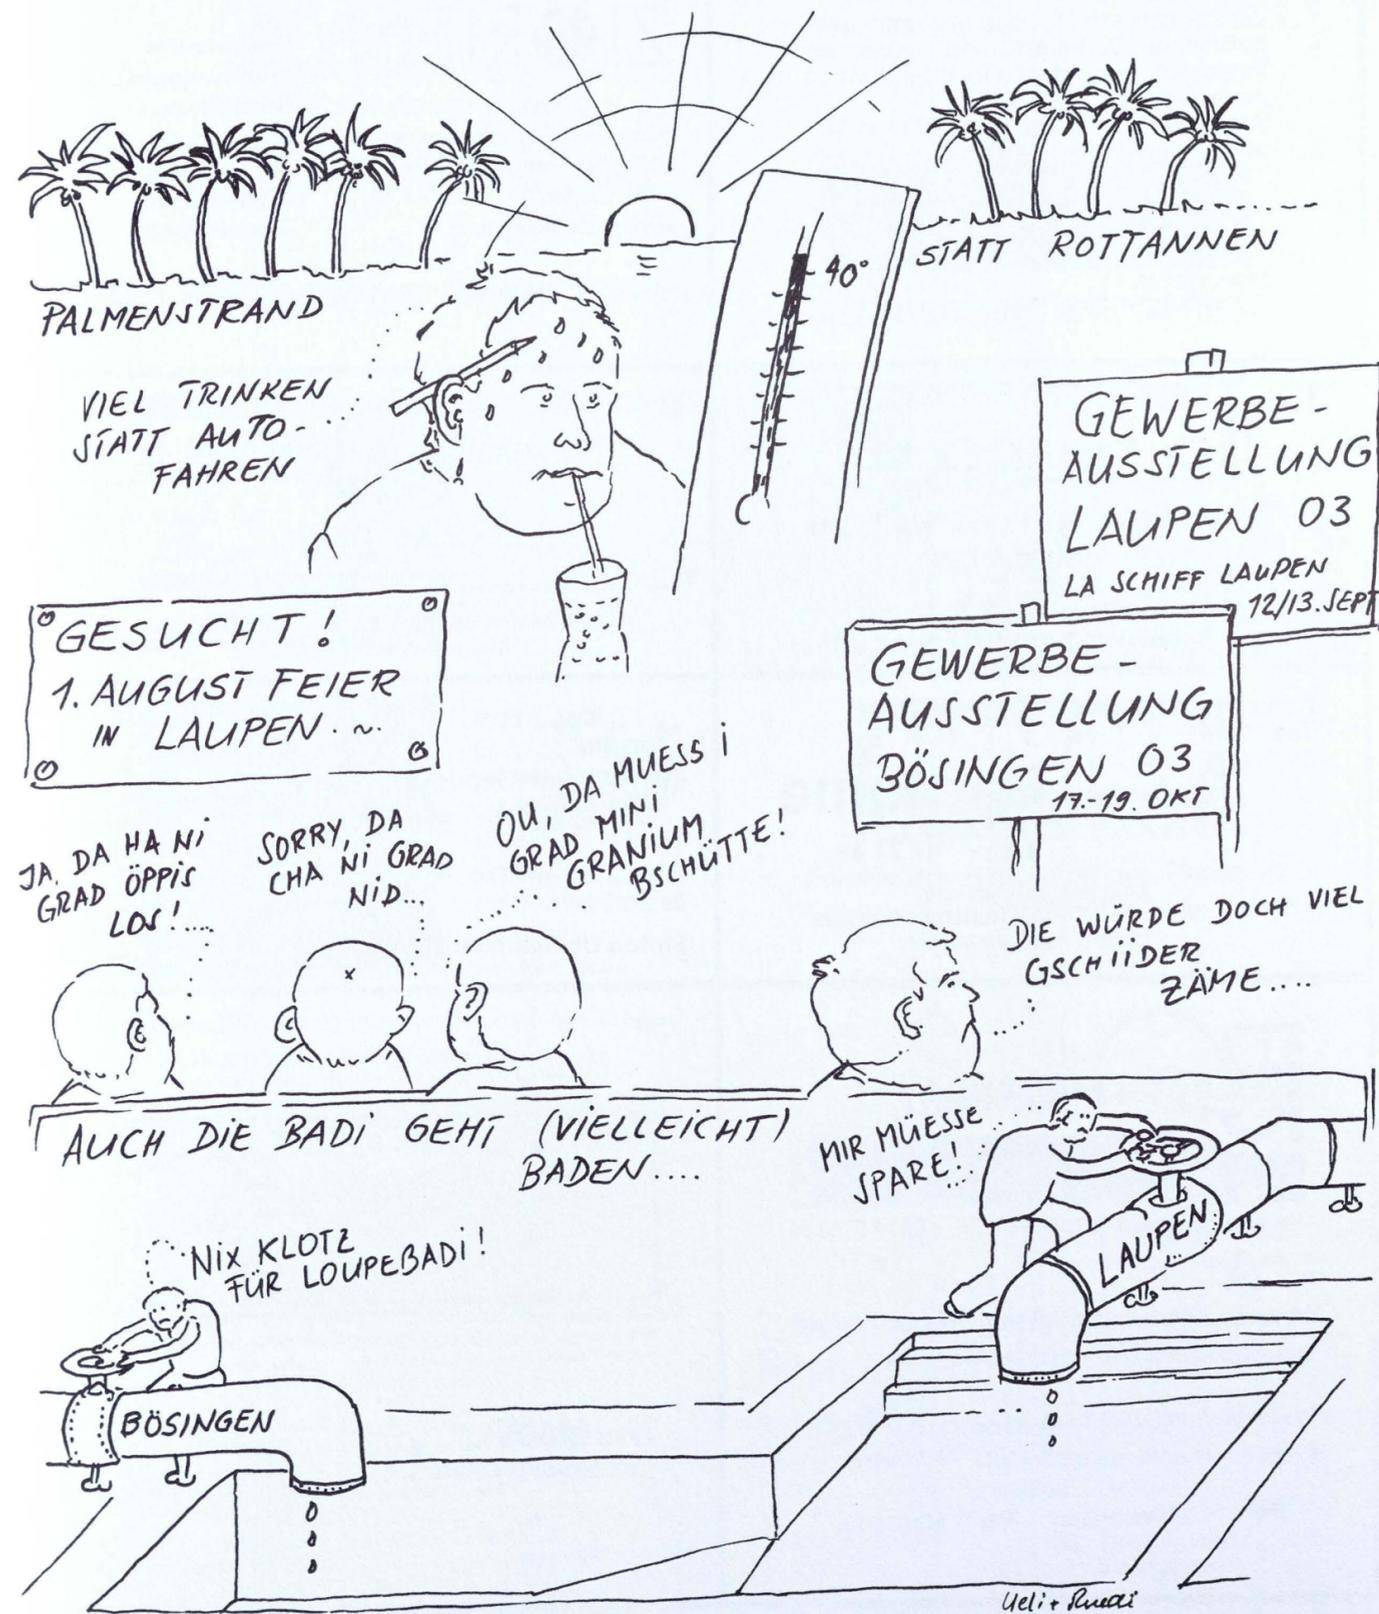 40°
STATT ROTTANNEN
PALMENSTRAND
VIEL TRINKEN
STATT AUTO-
FAHREN
GEWERBE-
AUSSTELLUNG
LAUPEN 03
LA SCHIFF LAUPEN
12/13. SEPT
GESUCHT!
1. AUGUST FEIER
IN LAUPEN.~
GEWERBE-
AUSSTELLUNG
BÖSINGEN 03
17.-19. OKT
JA, DA HA NI
GRAD ÖPPIS
LOS!....
SORRY, DA
CHA NI GRAD
NID...
OU, DA MUESS i
GRAD MINI
GRANIUM
BSCHÜTTE!
DIE WÜRDE DOCH VIEL
GSCHIIDER
ZÄME....
AUCH DIE BADI GEHT (VIELLEICHT)
BADEN....
MIR MÜESSE
SPARE!
NIX KLOTZ
FÜR LOUPEBADI!
LAUPEN
BÖSINGEN
Ueli + Ruedi